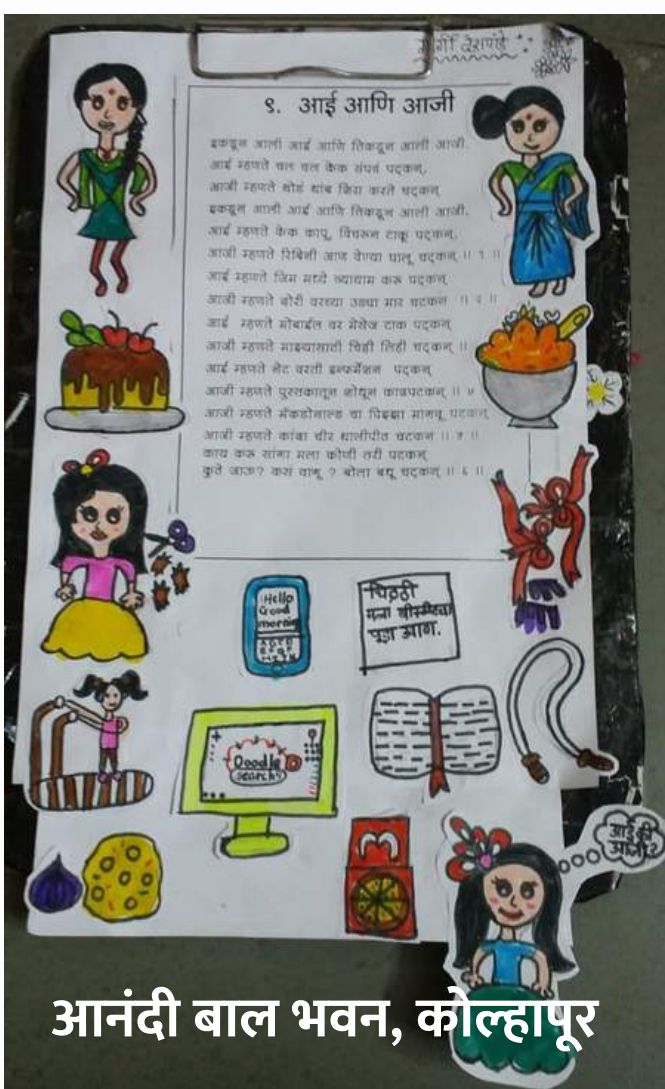 गार्गी देशपांडे
९. आई आणि आजी
इकडून आली आई आणि तिकडून आली आजी.
आई म्हणते चल चल केक संपवं पट्कन्,
आजी म्हणते थोडं थांब शिरा करते चट्कन्
इकडून आली आई आणि तिकडून आली आजी.
आई म्हणते केक कापू, विंचरून टाकू पट्कन्,
आजी म्हणते रिबिनी आण वेण्या घालू चट्कन् ।। १ ।।
आई म्हणते जिम मध्ये व्यायाम करू पट्कन्
आजी म्हणते दोरी वरच्या उड्या मार चटकन ।। २ ।।
आई म्हणते मोबाईल वर मेसेज टाक पट्कन्
आजी म्हणते माझ्यासाठी चिठ्ठी लिही चट्कन् ।।
आई म्हणते नेट वरती इन्फर्मेशन पट्कन्
आजी म्हणते पुस्तकातून शोधून काढपटकन् ।। ४
आजी म्हणते मॅकडोनाल्ड चा पिझ्झा मागवू पटकन्
आजी म्हणते कांदा चीर थालीपीठ चटकन ।। ५ ।।
काय करू सांगा मला कोणी तरी पटकन्
कुठे जाऊ? कसं वागू ? बोला बघू चट्कन् ।। ६ ।।
Hello
Good
morning
चिठ्ठी
मला
पुडा आण.
Doodle
search
आई की
आजी?
आनंदी बाल भवन, कोल्हापूर